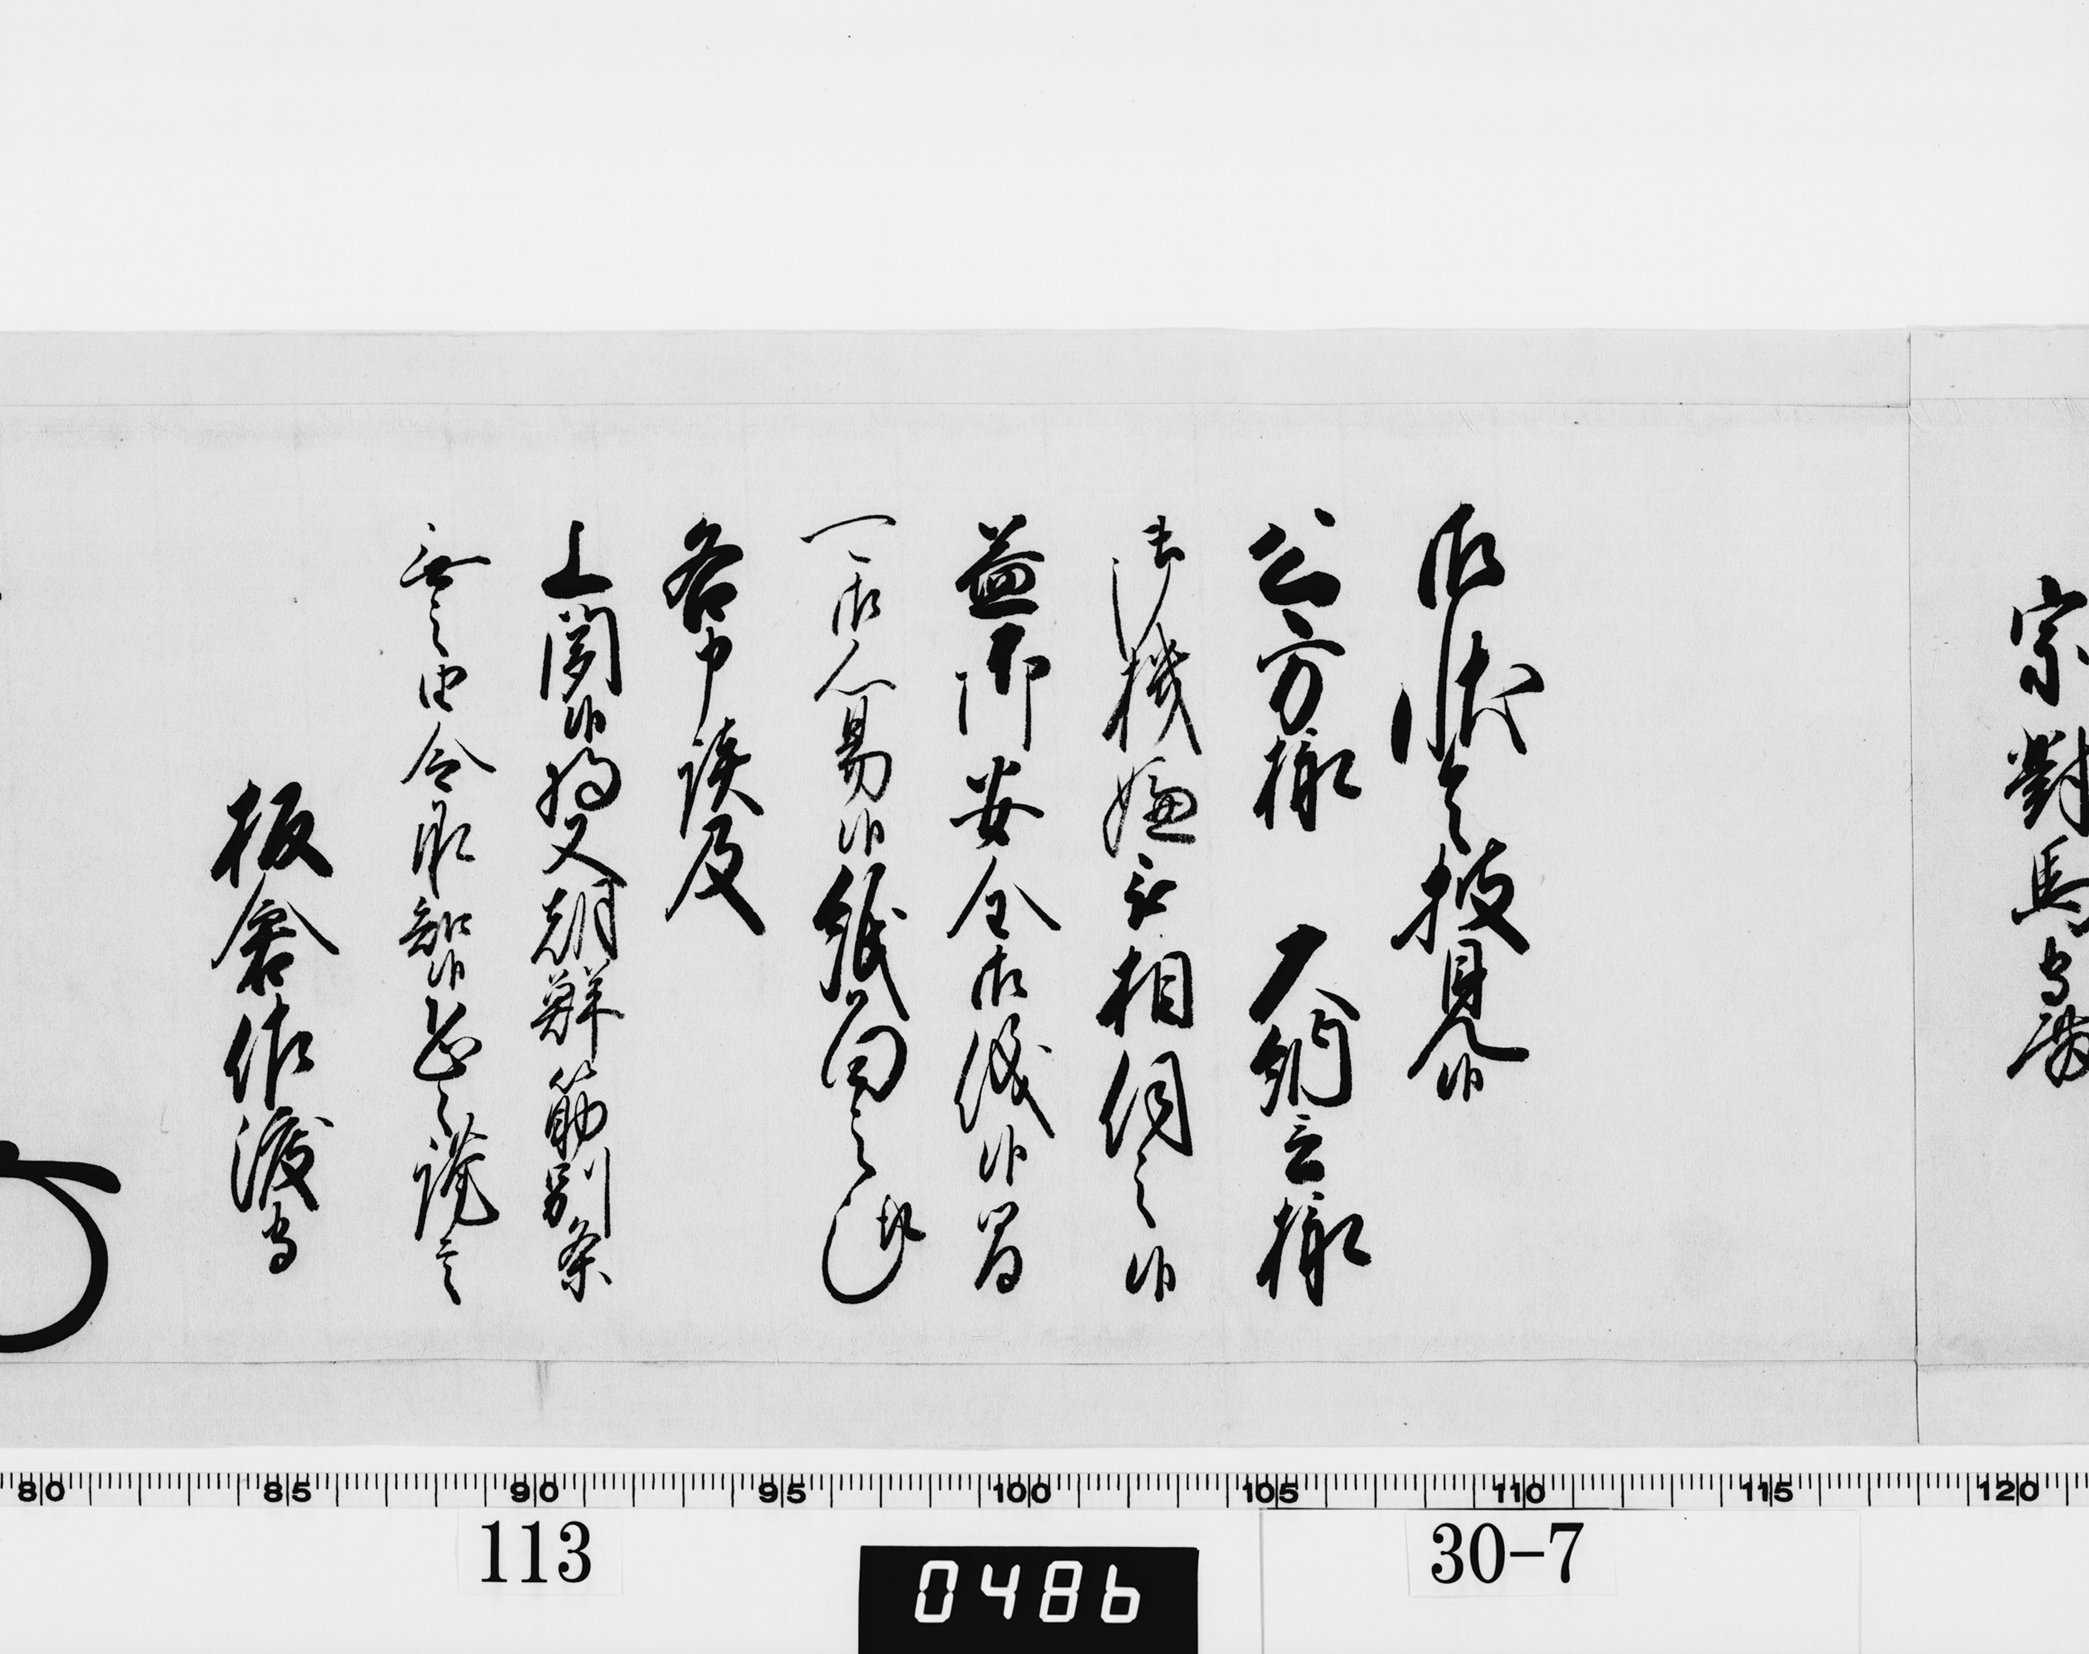 宗對馬守
御状令披見候
公方様 大納言様
御機嫌被相伺之候
益御安全御儀候間
可御心易候紙面之趣
各申談及
上聞候将又朝鮮筋別条
無之由令承知候恐々謹言
板倉佐渡守
80 85 90 95 100 105 110 115 120
113 30-7
0486